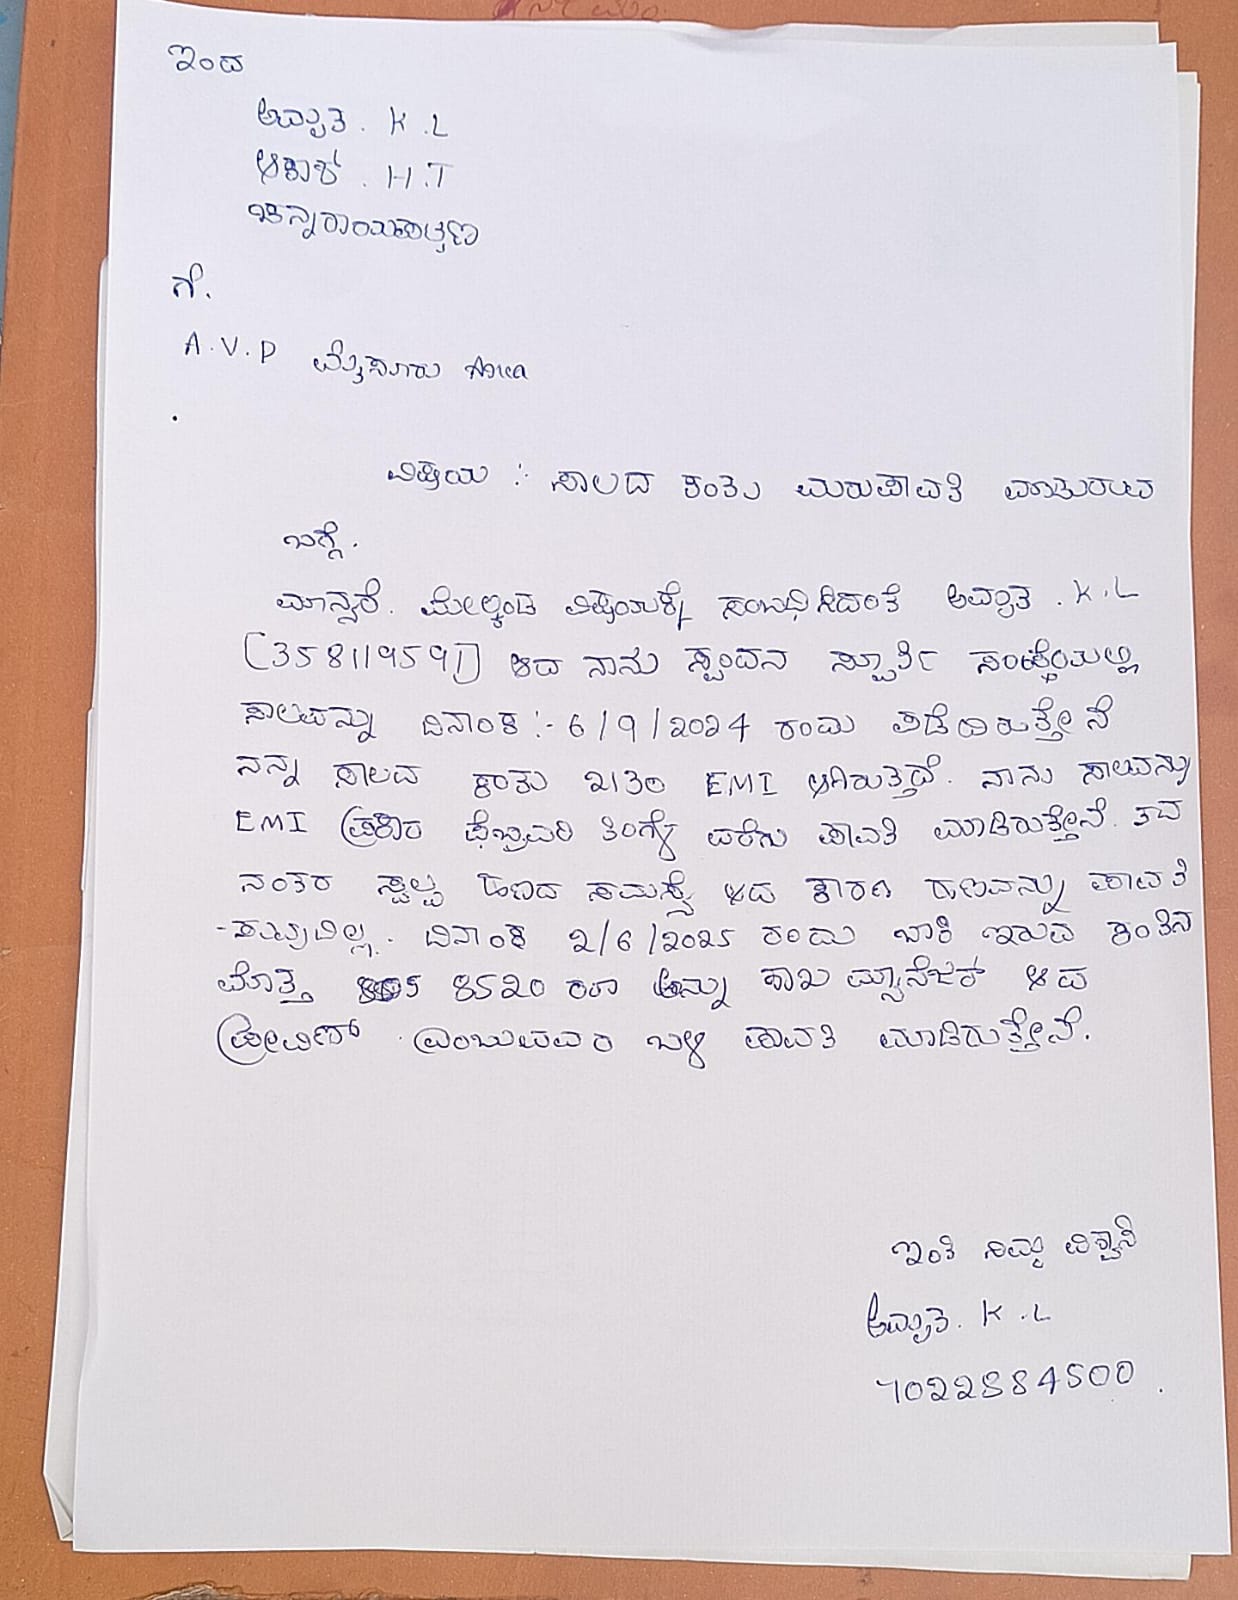 ಇಂದ
ಅಮೃತ. K.L
ಆಕಾಶ್. H.T
ಚನ್ನರಾಯಪಟ್ಟಣ
ಗೆ.
A.V.P ಮೈಸೂರು Area
ವಿಷಯ : ಸಾಲದ ಕಂತು ಮರುಪಾವತಿ ಮಾಡಿರುವ
ಬಗ್ಗೆ.
ಮಾನ್ಯರೆ. ಮೇಲ್ಕಂಡ ವಿಷಯಕ್ಕೆ ಸಂಬಧಿಸಿದಂತೆ ಅಮೃತ. K.L
(358119591) ಆದ ನಾನು ಸ್ಪಂದನ ಸ್ಪೂರ್ತಿ ಸಂಸ್ಥೆಯಲ್ಲಿ
ಸಾಲವನ್ನು ದಿನಾಂಕ :- 6/9/2024 ರಂದು ಪಡೆದಿರುತ್ತೇನೆ
ನನ್ನ ಸಾಲದ ಕಂತು 2130 EMI ಆಗಿರುತ್ತದೆ. ನಾನು ಸಾಲವನ್ನು
EMI ಪ್ರಕಾರ ಫೆಬ್ರವರಿ ತಿಂಗಳ್ಳೆ ವರೆಗು ಪಾವತಿ ಮಾಡಿರುತ್ತೇನೆ. ತದ
ನಂತರ ಸ್ವಲ್ಪ ಹಣದ ಸಮಸ್ಯೆ ಆದ ಕಾರಣ ಹಣವನ್ನು ಪಾವತಿ
- ಸುವುದಿಲ್ಲ. ದಿನಾಂಕ 2/6/2025 ರಂದು ಬಾಕಿ ಇರುವ ಕಂತಿನ
ಮೊತ್ತ 8520 ರೂ ಅನ್ನು ಶಾಖ ಮ್ಯಾನೇಜರ್ ಆದ
ಪ್ರವೀಣ್ ಎಂಬುವವರ ಬಳಿ ಪಾವತಿ ಮಾಡಿರುತ್ತೇನೆ.
ಇಂತಿ ನಿಮ್ಮ ವಿಶ್ವಾಸಿ
ಅಮೃತ. K.L
7022884500.